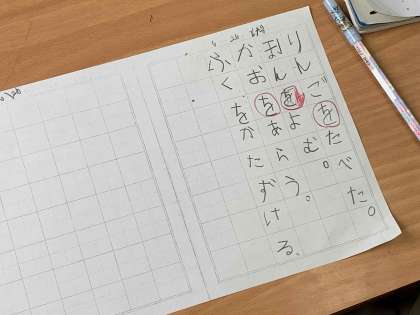 りんごをたべた。
ほんをよむ。
かおをあらう。
ふくをかたずける。